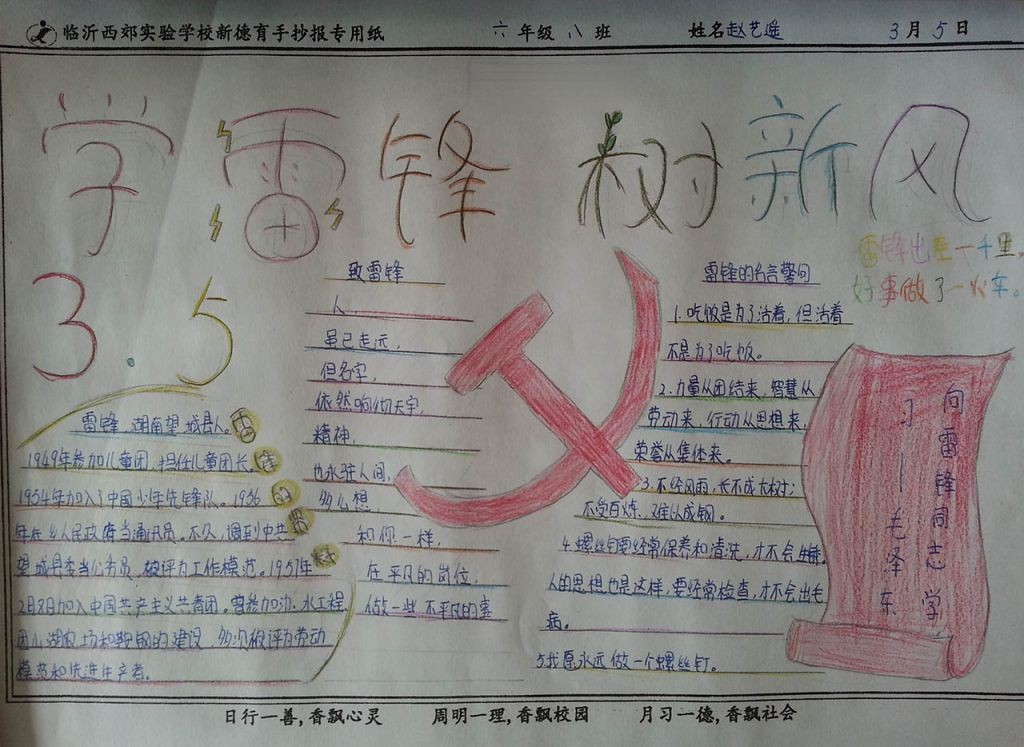 临沂西郊实验学校新德育手抄报专用纸 六年级八班 姓名赵艺遥 3月5日
学雷锋 树新风
雷锋出差一千里，
好事做了一火车。
3.5
雷锋，湖南望城县人。
1949年参加儿童团，担任儿童团长。
1954年加入了中国少年先锋队。1956
年在乡人民政府当通讯员，不久，调到中共
望城县委当公务员，被评为工作模范。1957年
2月8日加入中国共产主义共青团，曾参加沩水工程、
团山湖农场和鞍钢的建设，多次被评为劳动
模范和先进生产者。
雷
锋
的
致雷锋
人，
虽已走远，
但名字，
依然响彻天宇，
精神，
也永驻人间，
多么想
和你一样，
在平凡的岗位，
做一些不平凡的事
雷锋的名言警句
1.吃饭是为了活着，但活着
不是为了吃饭。
2.力量从团结来，智慧从
劳动来，行动从思想来，
荣誉从集体来。
3.不经风雨，长不成大树；
不受百炼，难以成钢。
4.螺丝钉要经常保养和清洗，才不会生锈。
人的思想也是这样，要经常检查，才不会出毛
病。
5.我愿永远做一个螺丝钉。
向雷锋同志学
习——毛泽东
日行一善，香飘心灵 周明一理，香飘校园 月习一德，香飘社会